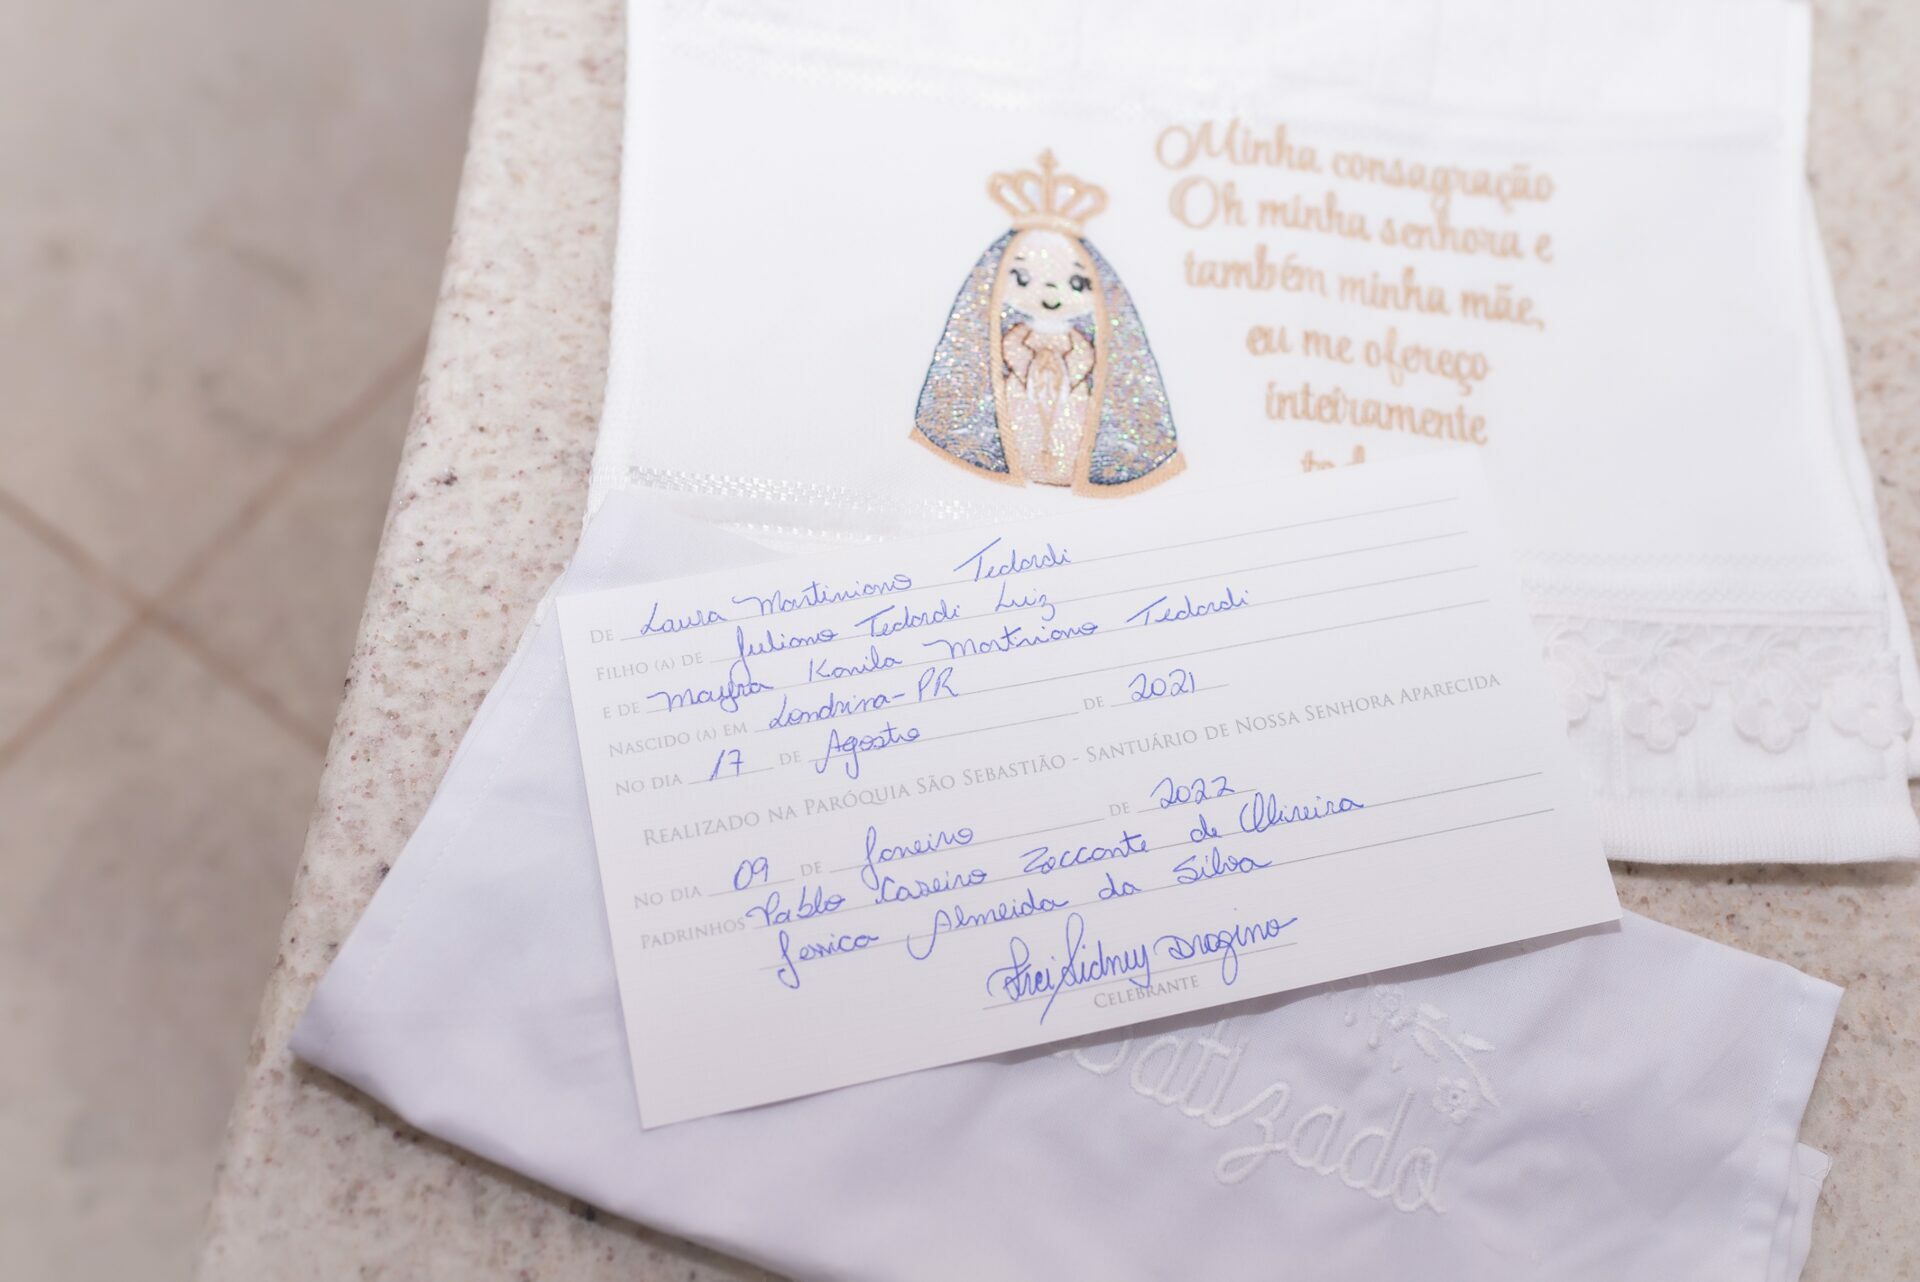 Minha consagração
Oh minha senhora e
também minha mãe,
eu me ofereço
inteiramente
DE Laura Martiniano Tedardi
FILHO (A) DE Juliano Tedardi Luiz
E DE Mayra Kamila Martiniano Tedardi
NASCIDO (A) EM Londrina-PR
NO DIA 17 DE Agosto DE 2021
REALIZADO NA PARÓQUIA SÃO SEBASTIÃO - SANTUÁRIO DE NOSSA SENHORA APARECIDA
NO DIA 09 DE Janeiro DE 2022
PADRINHOS Pablo Caseiro Zaccante de Oliveira
Jessica Almeida da Silva
Frei Sidney Dragino
CELEBRANTE
Batizado